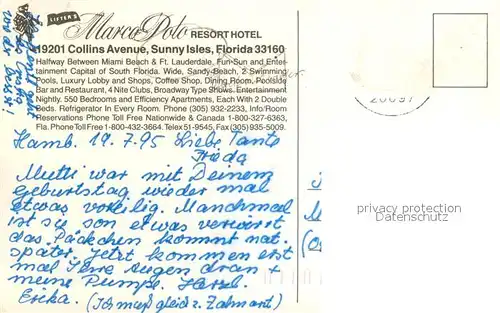 LIFTER'S
Marco Polo RESORT HOTEL
19201 Collins Avenue, Sunny Isles, Florida 33160
Halfway Between Miami Beach & Ft. Lauderdale, Fun-Sun and Enter-
tainment Capital of South Florida. Wide, Sandy-Beach, 2 Swimming
Pools, Luxury Lobby and Shops, Coffee Shop, Dining Room, Poolside
Bar and Restaurant, 4 Nite Clubs, Broadway Type Shows. Entertainment
Nightly. 550 Bedrooms and Efficiency Apartments, Each With 2 Double
Beds. Refrigerator In Every Room. Phone (305) 932-2233, Info/Room
Reservations Phone Toll Free Nationwide & Canada 1-800-327-6363,
Fla. Phone Toll Free 1-800-432-3664. Telex 51-9545, Fax (305) 935-5009.
Hamb. 19.7.95 Liebe Tante
Frieda
Mutti war mit Deinem
Geburtstag wieder mal
etwas voreilig. Manchmal
ist sie son etwas verwirrt
das Päckchen kommt nat.
später. Jetzt kommen erst
mal Ihre Augen dran +
meine Pumpe. Herzl.
Erika. (Ich muß gleich z. Zahnarzt)
20097
privacy protection
Datenschutz